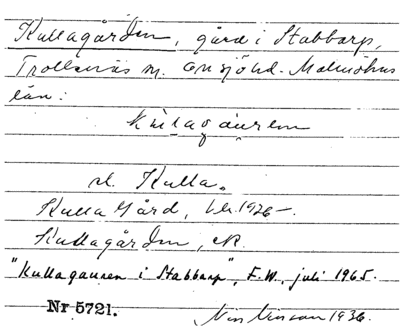 Kullagården, gård i Stabbarp,
Trollenäs sn. Onsjö hd. Malmöhus
län:
kúlagáuren
sl. Kulla.
Kulla Gård, 1926-.
Kullagården, ek.
"Kullagauren i Stabbarp", F.W. juli 1965.
Nr 5721.
1936.